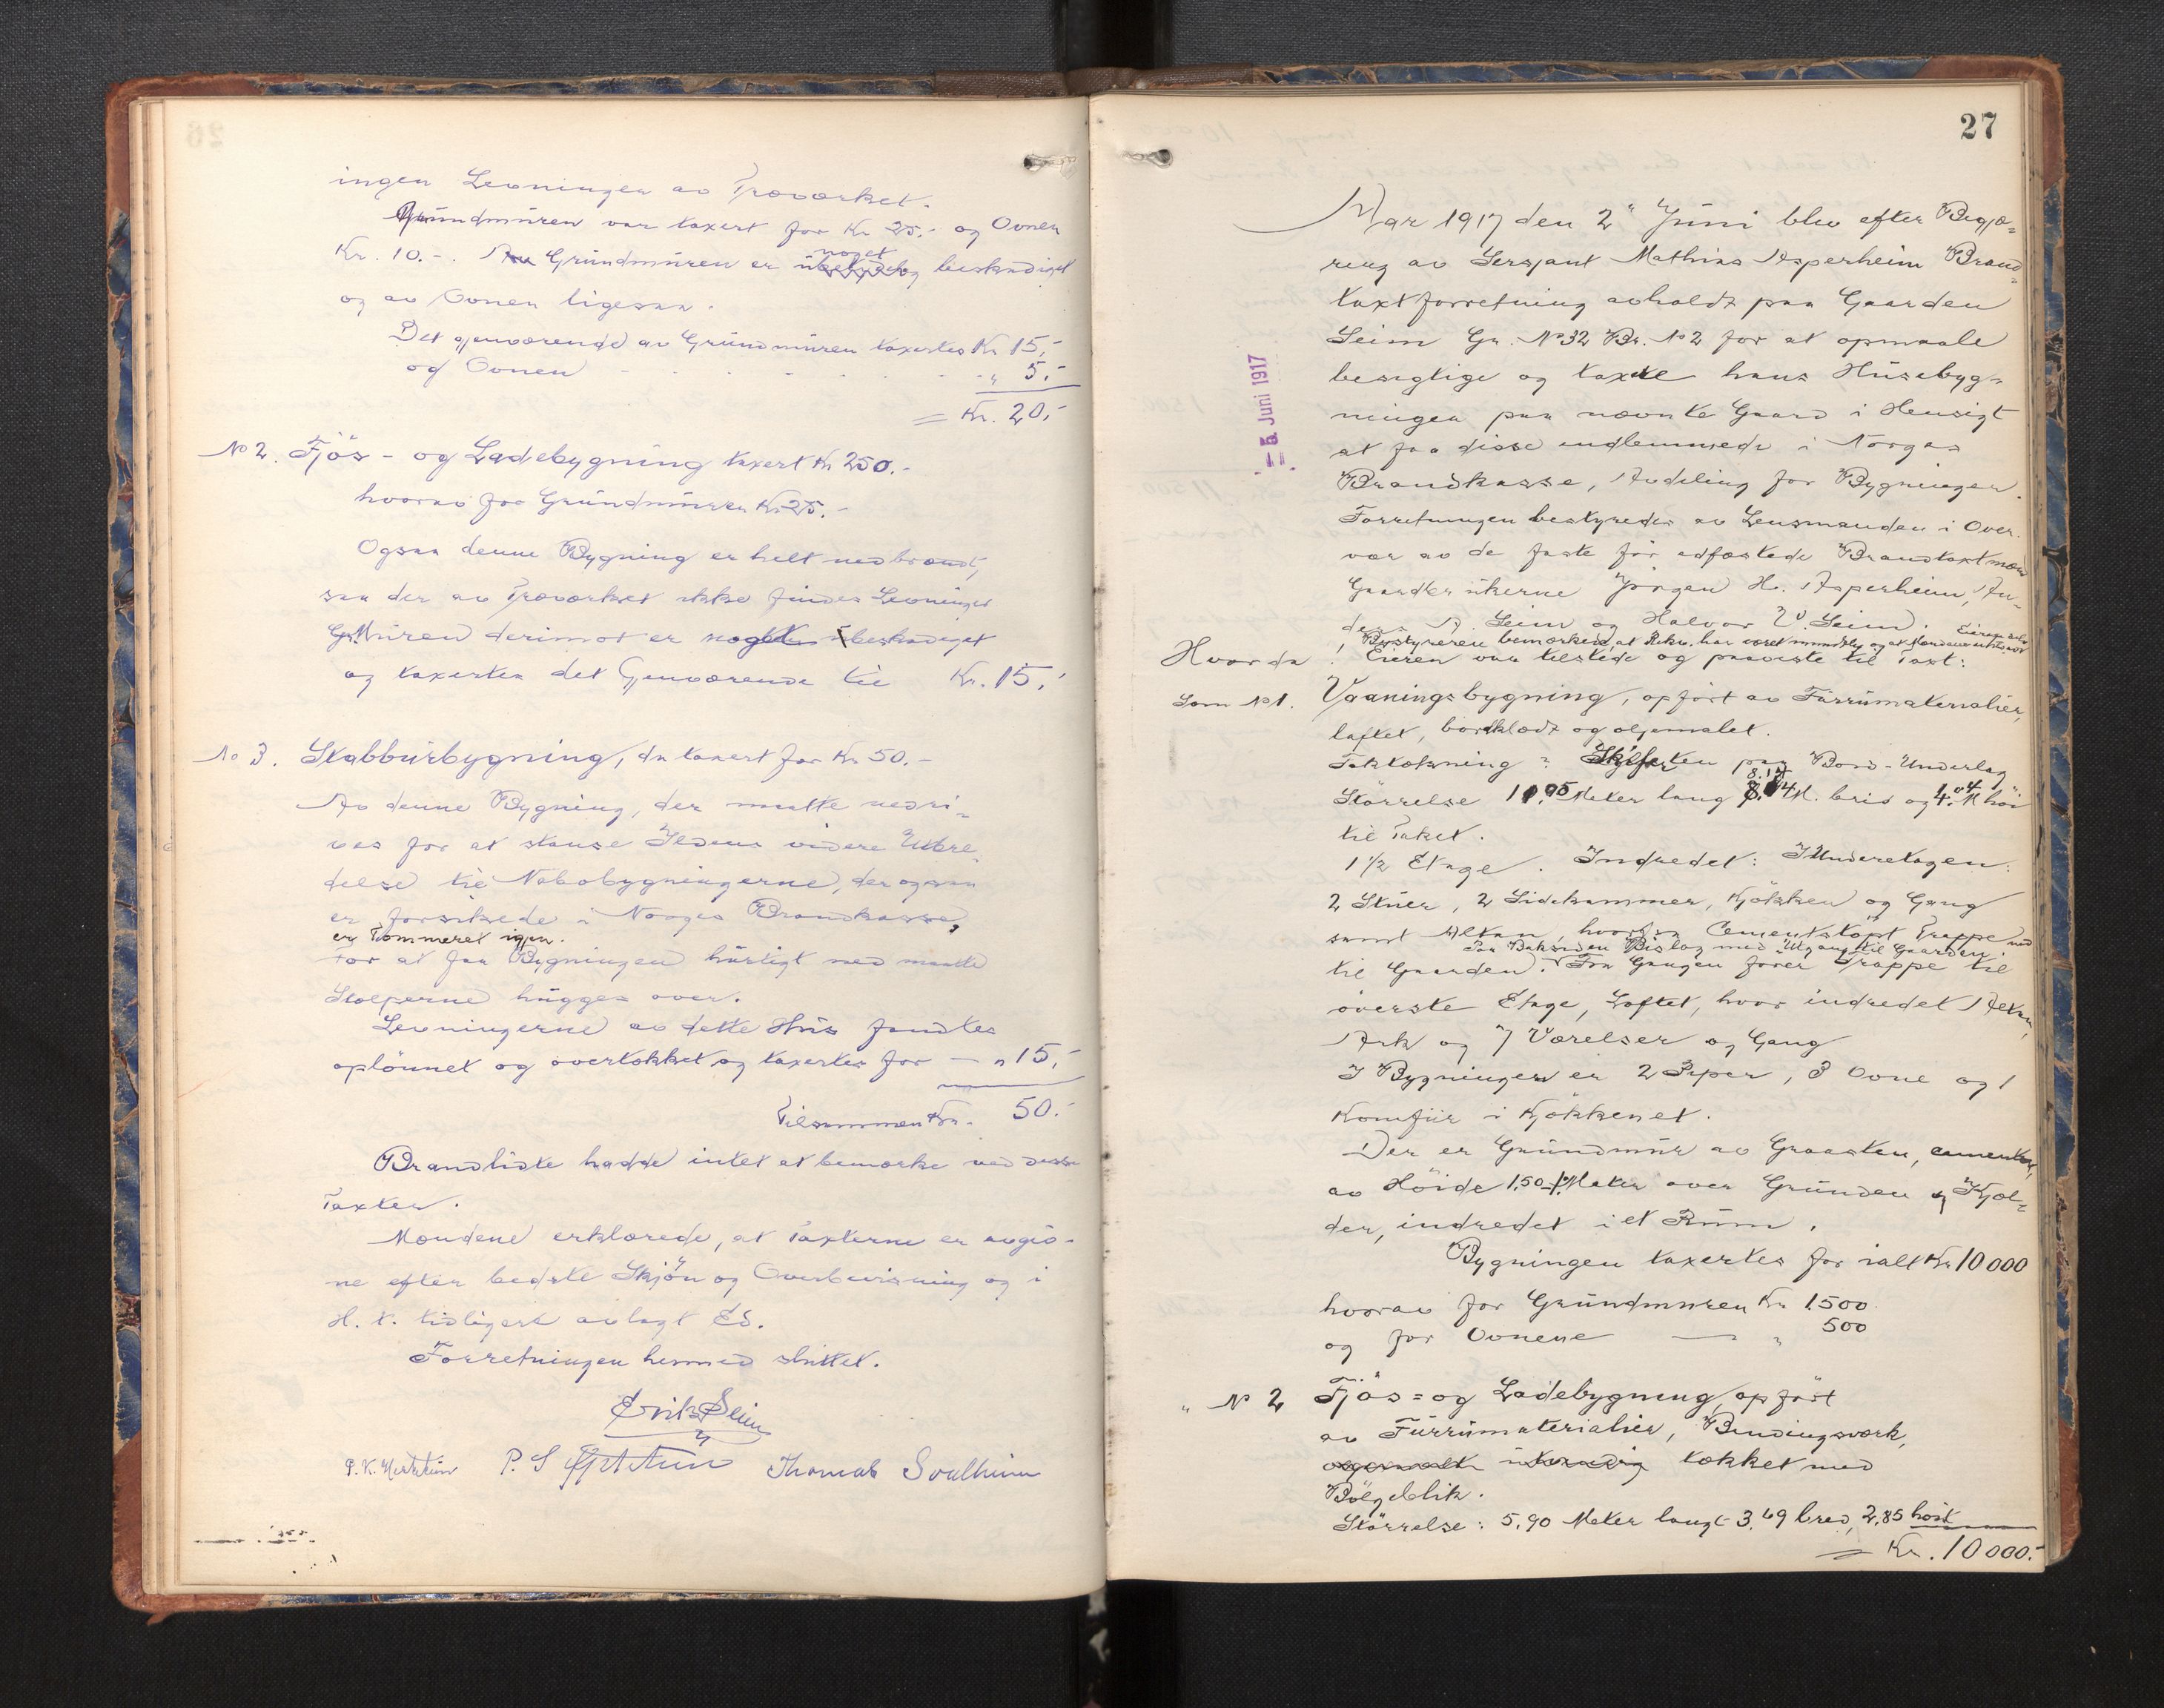 ingen Levninger av Træværket.
Grundmuren var taxert for Kr 25.- og Ovnen
Kr. 10.-. Grundmuren er noget beskadiget
og av Ovnen ligesaa.
Det gjenværende av Grundmuren taxertes Kr 15,-
og Ovnen - - - - - " 5.-
= Kr. 20,-
No 2. Fjös- og Ladebygning taxert Kr 250.-
hvorav for Grundmuren Kr 25.-
Ogsaa denne Bygning er helt nedbrændt,
saa der av Træværket ikke findes Levninger
Gr.Muren derimot er beskadiget
og taxertes det Gjenværende til Kr. 15,-
No 3. Stabbursbygning, da taxert for Kr 50.-
Av denne Bygning, der maatte nedri-
ves for at standse Ildens videre Utbre-
delse til Nabobygningerne, der ogsaa
er forsikrede i Norges Brandkasse,
er Tømmeret igjen.
For at faa Bygningen hurtigt ned maatte
Stolperne hugges over.
Levningerne av dette Hus fandtes
oplönnet og overtækket og taxertes for — " 15,-
Tilsammen Kr. 50.-
Brandlidte hadde intet at bemærke ved disse
Taxter.
Mændene erklærede, at Taxterne er avgiv-
ne efter bedste Skjön og Overbevisning og i
H. t. tidligere avlagt Ed.
Forretningen hermed sluttet.
Erik Seim
P. S. Thomas Soalheim
27
Aar 1917 den 2' Juni blev efter Begjæ-
ring av Sersjant Mathias Asperheim Brand-
taxtforretning avholdt paa Gaarden
Seim Gr. No 32 Br. No 2 for at opmaale
besigtige og taxere hans Husebyg-
ninger paa nævnte Gaard i Hensigt
at faa disse indlemmede i Norges
Brandkasse, Avdeling for Bygninger.
- 5. Juni 1917
Forretningen bestyredes av Lensmanden i Over-
vær av de faste för edfæstede Brandtaxtmænd
Gaardbrukerne Jörgen H. Asperheim, An-
ders A. Seim og Halvor V. Seim.
Bestyreren bemærkede, at Rekv. har været mundtlig og at
Hvorda: Eieren var tilstede og paaviste til Taxt:
Som No 1. Vaaningsbygning, opfört av Furumaterialier,
laftet, bordklædt og oljemalet.
Taktækning: Skifer paa Bord-Underlag
Störrelse 11.95 Meter lang 8.14 M. bred og 4.04 M höi
til Taket.
1 1/2 Etage. Indredet: I Underetagen:
2 Stuer, 2 Sidekammer, Kjökken og Gang
samt Altan, hvorfra Cementstöpt Trappe ned
Paa Baksiden Bislag med Utgang til Gaarden.
til Gaarden. Fra Gangen förer Trappe til
överste Etage, Loftet, hvor indredet Altan,
Ark og 7 Værelser og Gang
I Bygningen er 2 Piper, 3 Ovne og 1
Komfür i Kjökkenet.
Der er Grundmur av Graasten, cementert,
av Höide 1,50 Meter over Grunden og Kjel-
der, indredet i et Rum.
Bygningen taxertes for ialt Kr 10000
hvorav for Grundmuren Kr 1500
og for Ovnene — " 500
" No 2 Fjös- og Ladebygning, opfört
av Furumaterialier, Bindingsværk,
tækket med
Bölgeblik.
Störrelse: 5,90 Meter langt 3,69 bred, 2,85 höit
= Kr. 10000.-